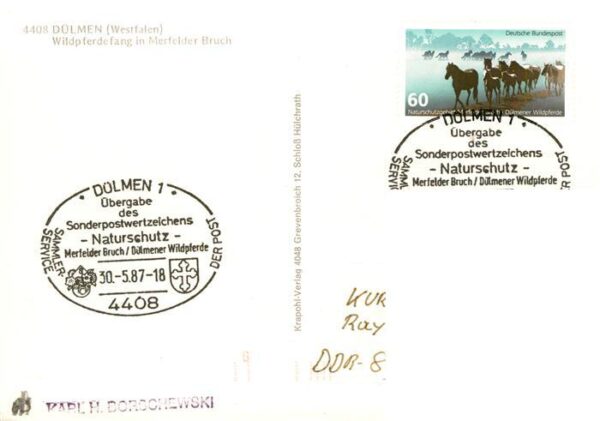 4408 DÜLMEN (Westfalen)
Wildpferdefang in Merfelder Bruch
Deutsche Bundespost
60
Dülmener Wildpferde
DÜLMEN 1
Übergabe
des
Sonderpostwertzeichens
- Naturschutz -
Merfelder Bruch / Dülmener Wildpferde
Krapohl-Verlag 4048 Grevenbroich 12, Schloß Hülchrath
DÜLMEN 1
Übergabe
des
Sonderpostwertzeichens
- Naturschutz -
Merfelder Bruch / Dülmener Wildpferde
SAMMLER-
SERVICE
DER POST
30.-5.87-18
4408
KUR
Ray
DDR-8
KARL H. DOROCHEWSKI